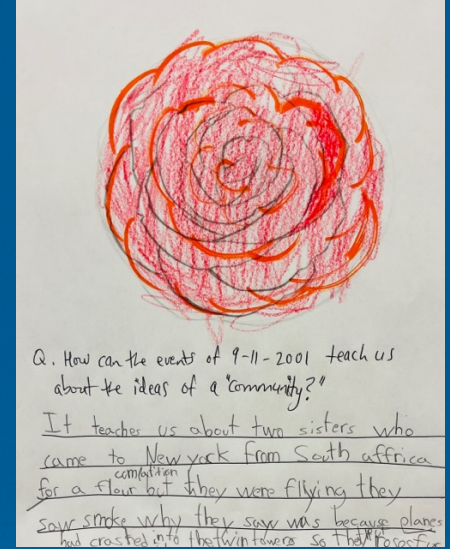 Q. How can the events of 9-11-2001 teach us
about the ideas of a "community?"
It teaches us about two sisters who
came to New york from South affrica
for a flour but they were fliying they
saw smoke why they saw was because planes
had crashed into the twin towers so